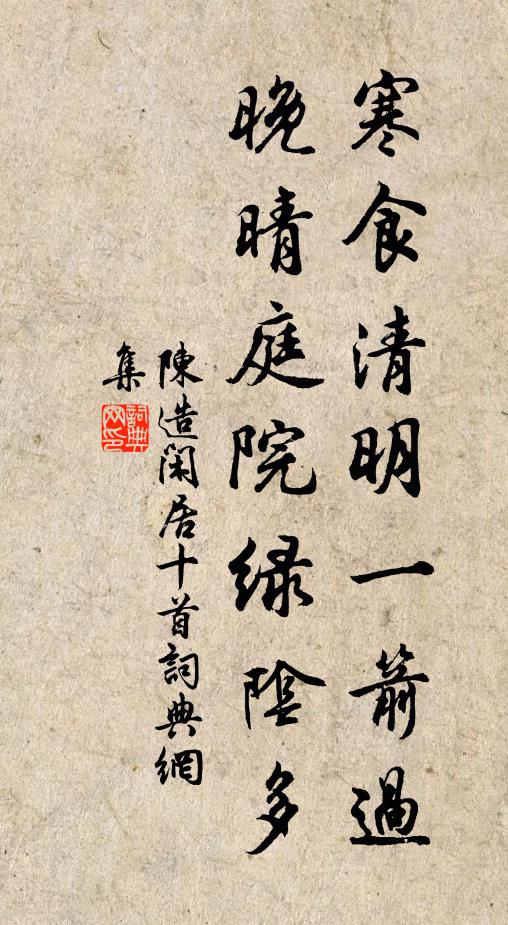 寒食清明一箭過
晚晴庭院緑陰多
陳造閑居十首詞典網
集
詞典
网印